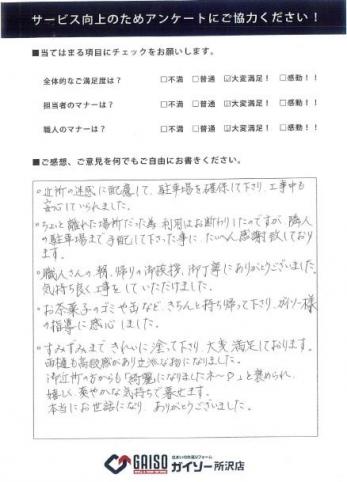 サービス向上のためアンケートにご協力ください！
■当てはまる項目にチェックをお願いします。
全体的なご満足度は？ □不満 □普通 ☑大変満足！ □感動！！
担当者のマナーは？ □不満 □普通 ☑大変満足！ □感動！！
職人のマナーは？ □不満 □普通 ☑大変満足！ □感動！！
■ご感想、ご意見を何でもご自由にお書きください。
○近所の迷惑に配慮して、駐車場を確保して下り、工事中も
安心していられました。
○ちょっと離れた場所だった為 利用はお断わりしたのですが、隣人
の駐車場まで手配して下さった事に、たいへん感謝致しており
ます。
○職人さんの朝、帰りの御挨拶、御丁寧にありがとうございました。
気持ち良く工事をしていただけました。
○お茶菓子のゴミや缶など、きちんと持ち帰って下り、ガイソー様
の指導に感心しました。
○すみずみまで きれいに塗って下り 大変満足しております。
雨樋も高級感があり立派な物になりました。
御近所の方からも「綺麗になりましたネ〜♡」と褒められ、
嬉しく爽やかな気持ちで暮せます。
本当にお世話になり、ありがとうございました。
GAISO 住まいの外装リフォーム
ガイソー所沢店